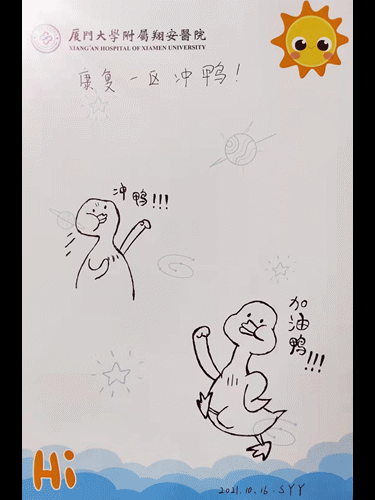 厦門大學附屬翔安醫院
XIANG'AN HOSPITAL OF XIAMEN UNIVERSITY
康复一区冲鸭!
冲鸭!!!
加油鸭!!!
Hi
2021.10.16. SYY